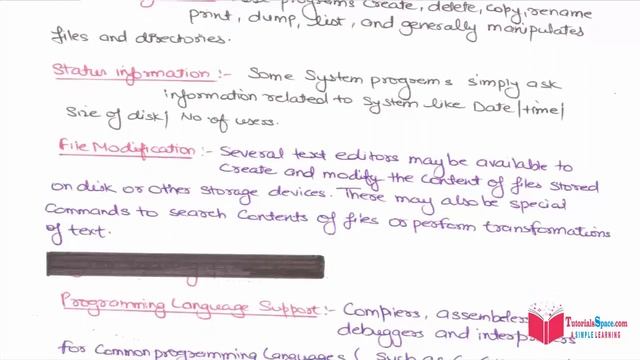 programs create, delete, copy, rename
print, dump, list, and generally manipulates
files and directories.
Status information :- Some System programs simply ask
information related to System like Date/time/
Size of disk/ No of users.
File Modification :- Several text editors may be available to
Create and modify the content of files stored
on disk or other storage devices. There may also be special
Commands to search Contents of files or perform transformations
of text.
Programming Language Support :- Compiers, assembelers
debuggers and
for Common programming Languages ( Such as
TutorialsSpace.com
A SIMPLE LEARNING